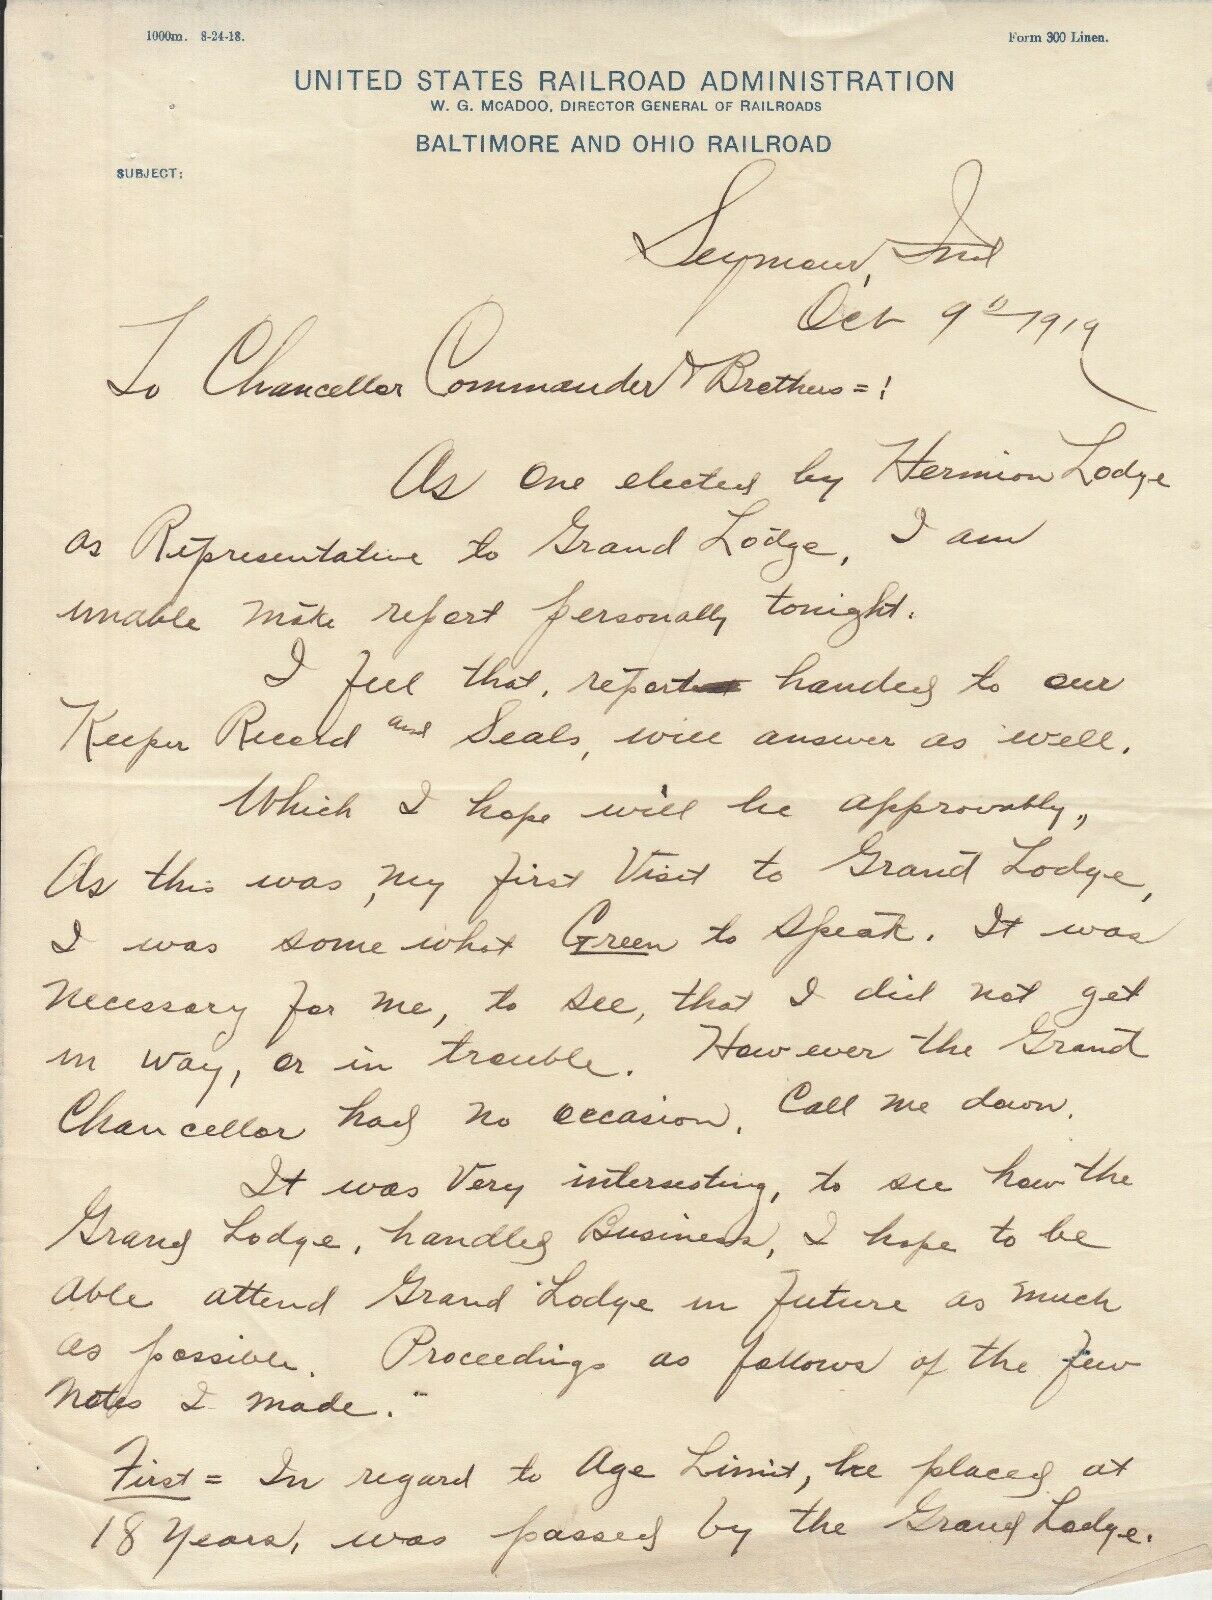 1000m. 8-24-18.
Form 300 Linen.
UNITED STATES RAILROAD ADMINISTRATION
W. G. McADOO, DIRECTOR GENERAL OF RAILROADS
BALTIMORE AND OHIO RAILROAD
SUBJECT:
Seymour, Ind
Oct 9" 1919
To Chancellor Commander & Brothers = !
As one elected by Hermion Lodge
as Representative to Grand Lodge, I am
unable make report personally tonight.
I feel that, report handed to our
Keeper Record and Seals, will answer as well.
Which I hope will be approvably,,
As this was, my first Visit to Grand Lodge,
I was somewhat Green to speak. It was
necessary for me, to see, that I did not get
in way, or in trouble. However the Grand
Chancellor had no occasion. Call me down.
It was Very intersesting, to see how the
Grand Lodge, handled Business, I hope to be
able attend Grand Lodge in future as much
as possible. Proceedings as follows of the few
notes I made.
First = In regard to Age Limit, be placed at
18 Years, was passed by the Grand Lodge.